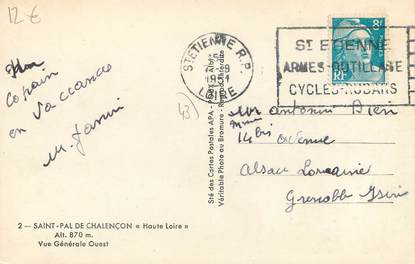 12 €
Un
copain
en vacances
M. Janin
(43)
ST ETIENNE R.P.
LOIRE
8F
RF
ST ETIENNE
ARMES-OUTILLAGE
CYCLES-RUBANS
Sté des Cartes Postales APA
Véritable Photo au Bromure - Reproduction Interdite
Mr Antonin
Mme
14 bis avenue
Alsace Lorraine
Grenoble Isère
2 — SAINT-PAL DE CHALENÇON « Haute Loire »
Alt. 870 m.
Vue Générale Ouest